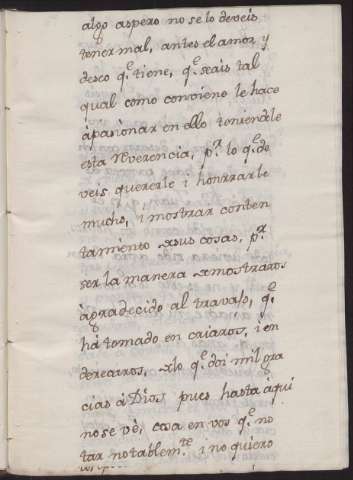 algo aspero no se lo deveis
tener mal, antes el amor, y
deseo q.e tiene, q.e seais tal
qual como conviene le hace
apasionar en ello teniendole
esta reverencia, p.r lo q.e de
veis quererle i honrrarle
mucho, i mostrar conten
tamiento de sus cosas, p.r
ser la manera de mostraros
agradecido al travajo, q.e
há tomado en criaros, i en
derezaros, de lo q.e doi mil gra
cias á Dios pues hasta aqui
no se vè, cosa en vos q.e no
tar notablem.te i no quiero